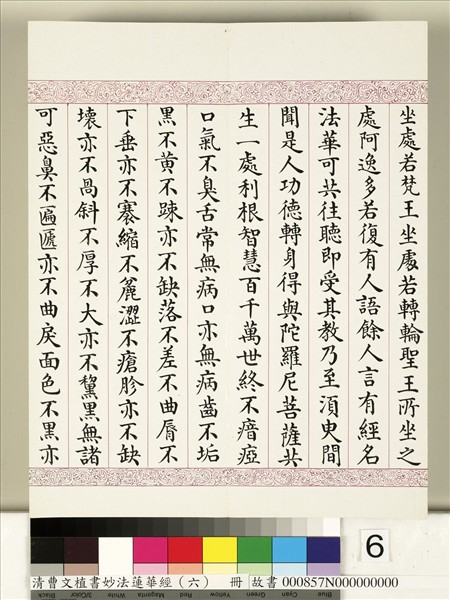 坐處若梵王坐處若轉輪聖王所坐之
處阿逸多若復有人語餘人言有經名
法華可共往聽即受其教乃至須臾間
聞是人功德轉身得與陀羅尼菩薩共
生一處利根智慧百千萬世終不瘖瘂
口氣不臭舌常無病口亦無病齒不垢
黑不黃不踈亦不缺落不差不曲脣不
下垂亦不褰縮不麤澀不瘡胗亦不缺
壞亦不咼斜不厚不大亦不黧黑無諸
可惡鼻不匾㔸亦不曲戾面色不黑亦
6
Black 3/Color White Magenta Red Yellow Green Cyan Blue
清曹文植書妙法蓮華經（六） 冊 故書 000857N000000000